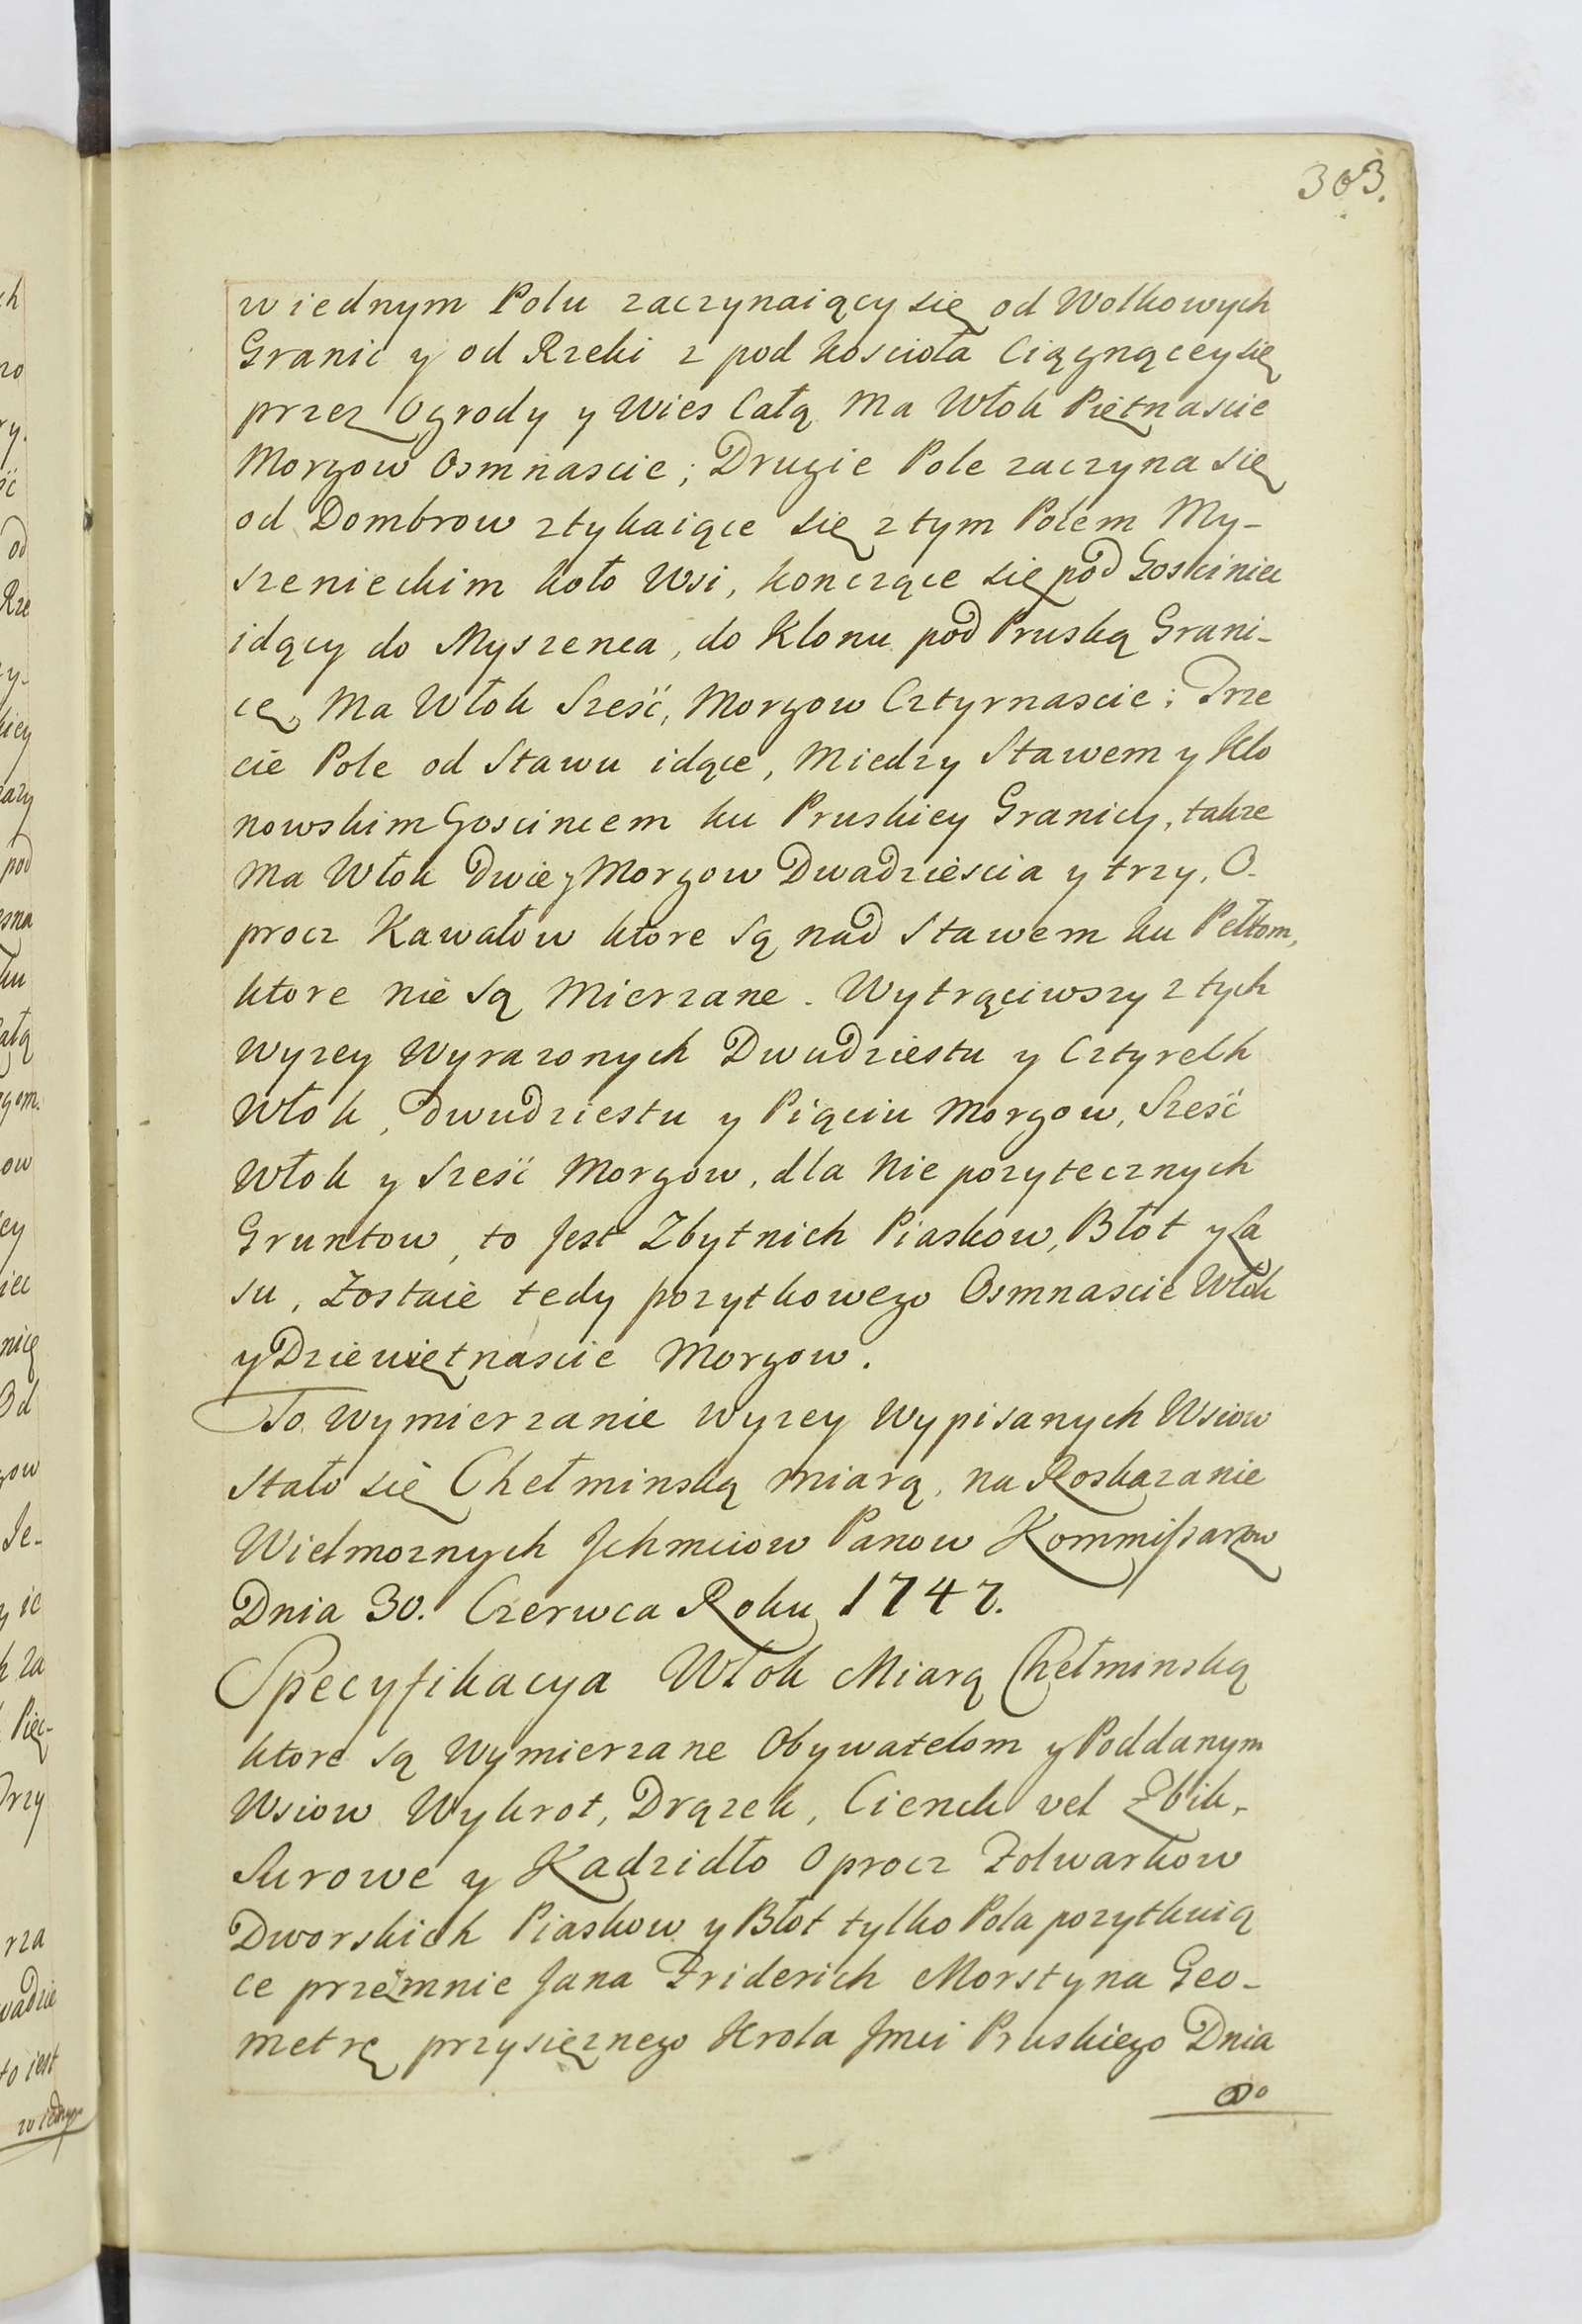 303.
w iednym Polu zaczynaiący się od Wolkowych
Granic y od Rzeki z pod kościoła Ciągnącey się
przez Ogrody y Wies Całą Ma Włok Piętnascie
Morgow Osmnascie; Drugie Pole zaczyna się
od Dombrow ztykaiące się z tym Polem My-
szenieckim koło Wsi, konczące się pod Gosciniec
idący do Myszenca, do Klonu pod Pruską Grani-
cę, Ma Włok Sześć, Morgow Cztyrnascie; Trze
cie Pole od Stawu idące, Miedzy Stawem y Klo
nowskim Goscincem ku Pruskiey Granicy, takze
Ma Włok Dwie y Morgow Dwadziescia y trzy. O-
procz Kawałow ktore są nad Stawem ku Pełtom,
ktore nie są Mierzane. Wytrąciwszy z tych
Wyzey Wyrazonych Dwudziestu y Cztyrech
Włok, Dwudziestu y Piąciu Morgow, Sześć
Włok y Sześć Morgow, dla Nie pozytecznych
Gruntow, to Jest Zbytnich Piaskow, Błot y La
su, Zostaie tedy pozytkowego Osmnascie Włok
y Dziewiętnascie Morgow.
To Wymierzanie Wyzey Wypisanych Wsiow
Stało się Chełminską miarą, na Roskazanie
Wielmoznych Ichmciow Panow Kommissarzow
Dnia 30. Czerwca Roku 1747.
Specyfikacya Włok Miarą Chełminską
ktore są Wymierzane Obywatelom y Poddanym
Wsiow Wykrot, Drązek, Cienck vel Zbik,
Surowe y Kadzidło Oprocz Folwarkow
Dworskich Piaskow y Błot tylko Pola pozytkuią
ce przezmnie Jana Friderich Morstyna Geo-
metrę przysięznego Krola Jmci Pruskiego Dnia